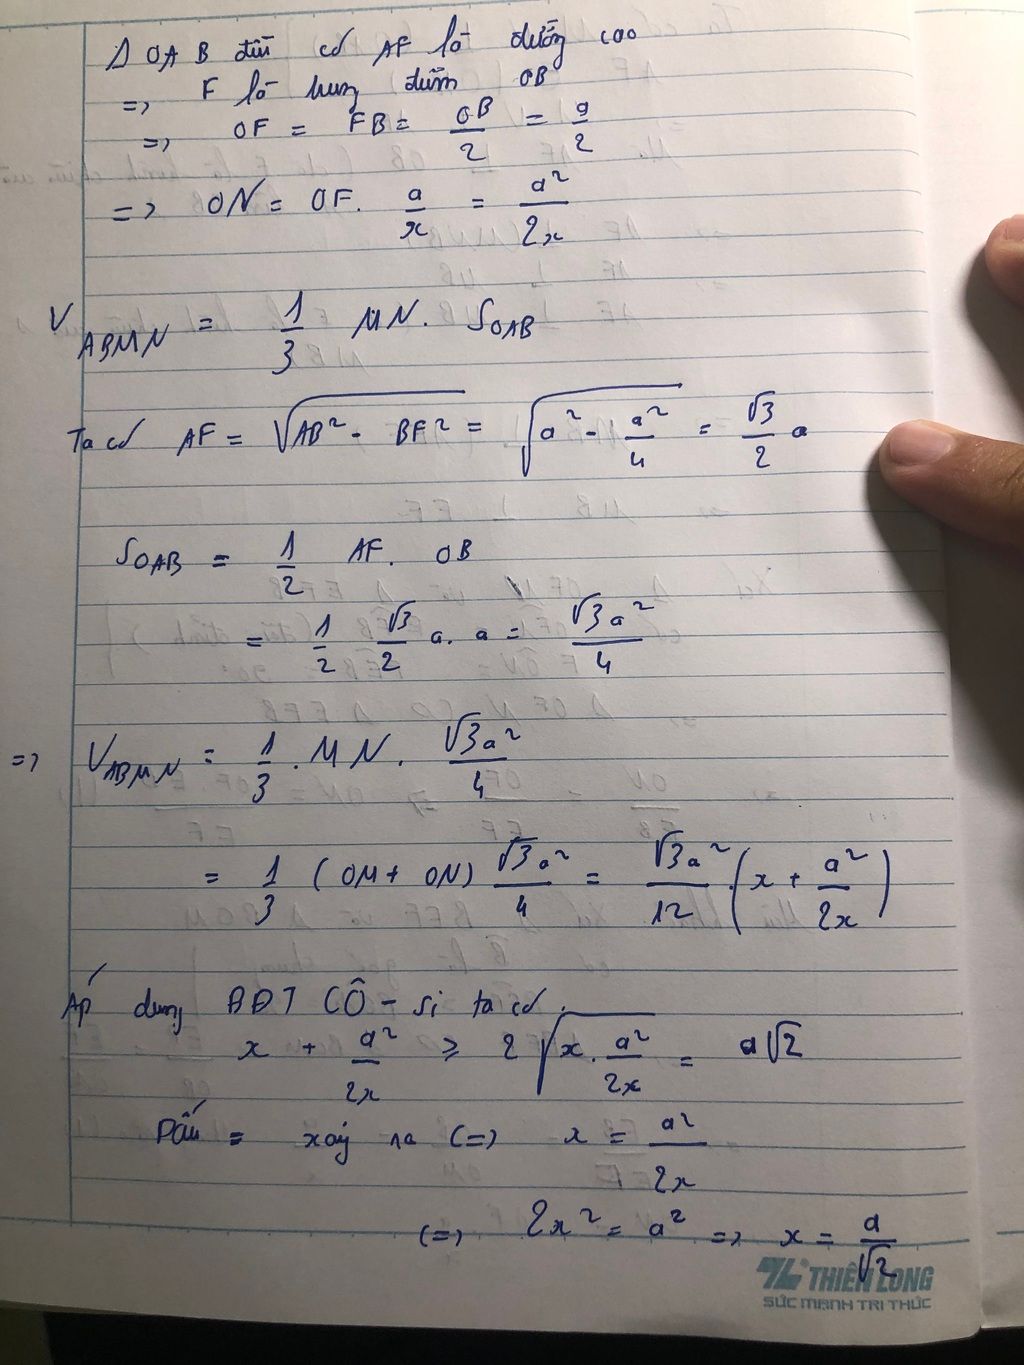 Δ OAB đều có AF là đường cao
=> F là trung điểm OB
=> OF = FB = OB/2 = a/2
=> ON = OF. a/x = a²/2x
V ABMN = 1/3 MN. S OAB
Ta có AF = √(AB² - BF²) = √(a² - a²/4) = √3/2 a
S OAB = 1/2 AF. OB
= 1/2 √3/2 a. a = √3a²/4
=> V ABMN = 1/3 . MN. √3a²/4
= 1/3 (OM + ON) √3a²/4 = √3a²/12 . (x + a²/2x)
Áp dụng BĐT CÔ-si ta có.
x + a²/2x ≥ 2√(x. a²/2x) = a√2
Dấu = xảy ra <=> x = a²/2x
<=> 2x² = a² => x = a/√2
THIÊN LONG
SỨC MẠNH TRI THỨC